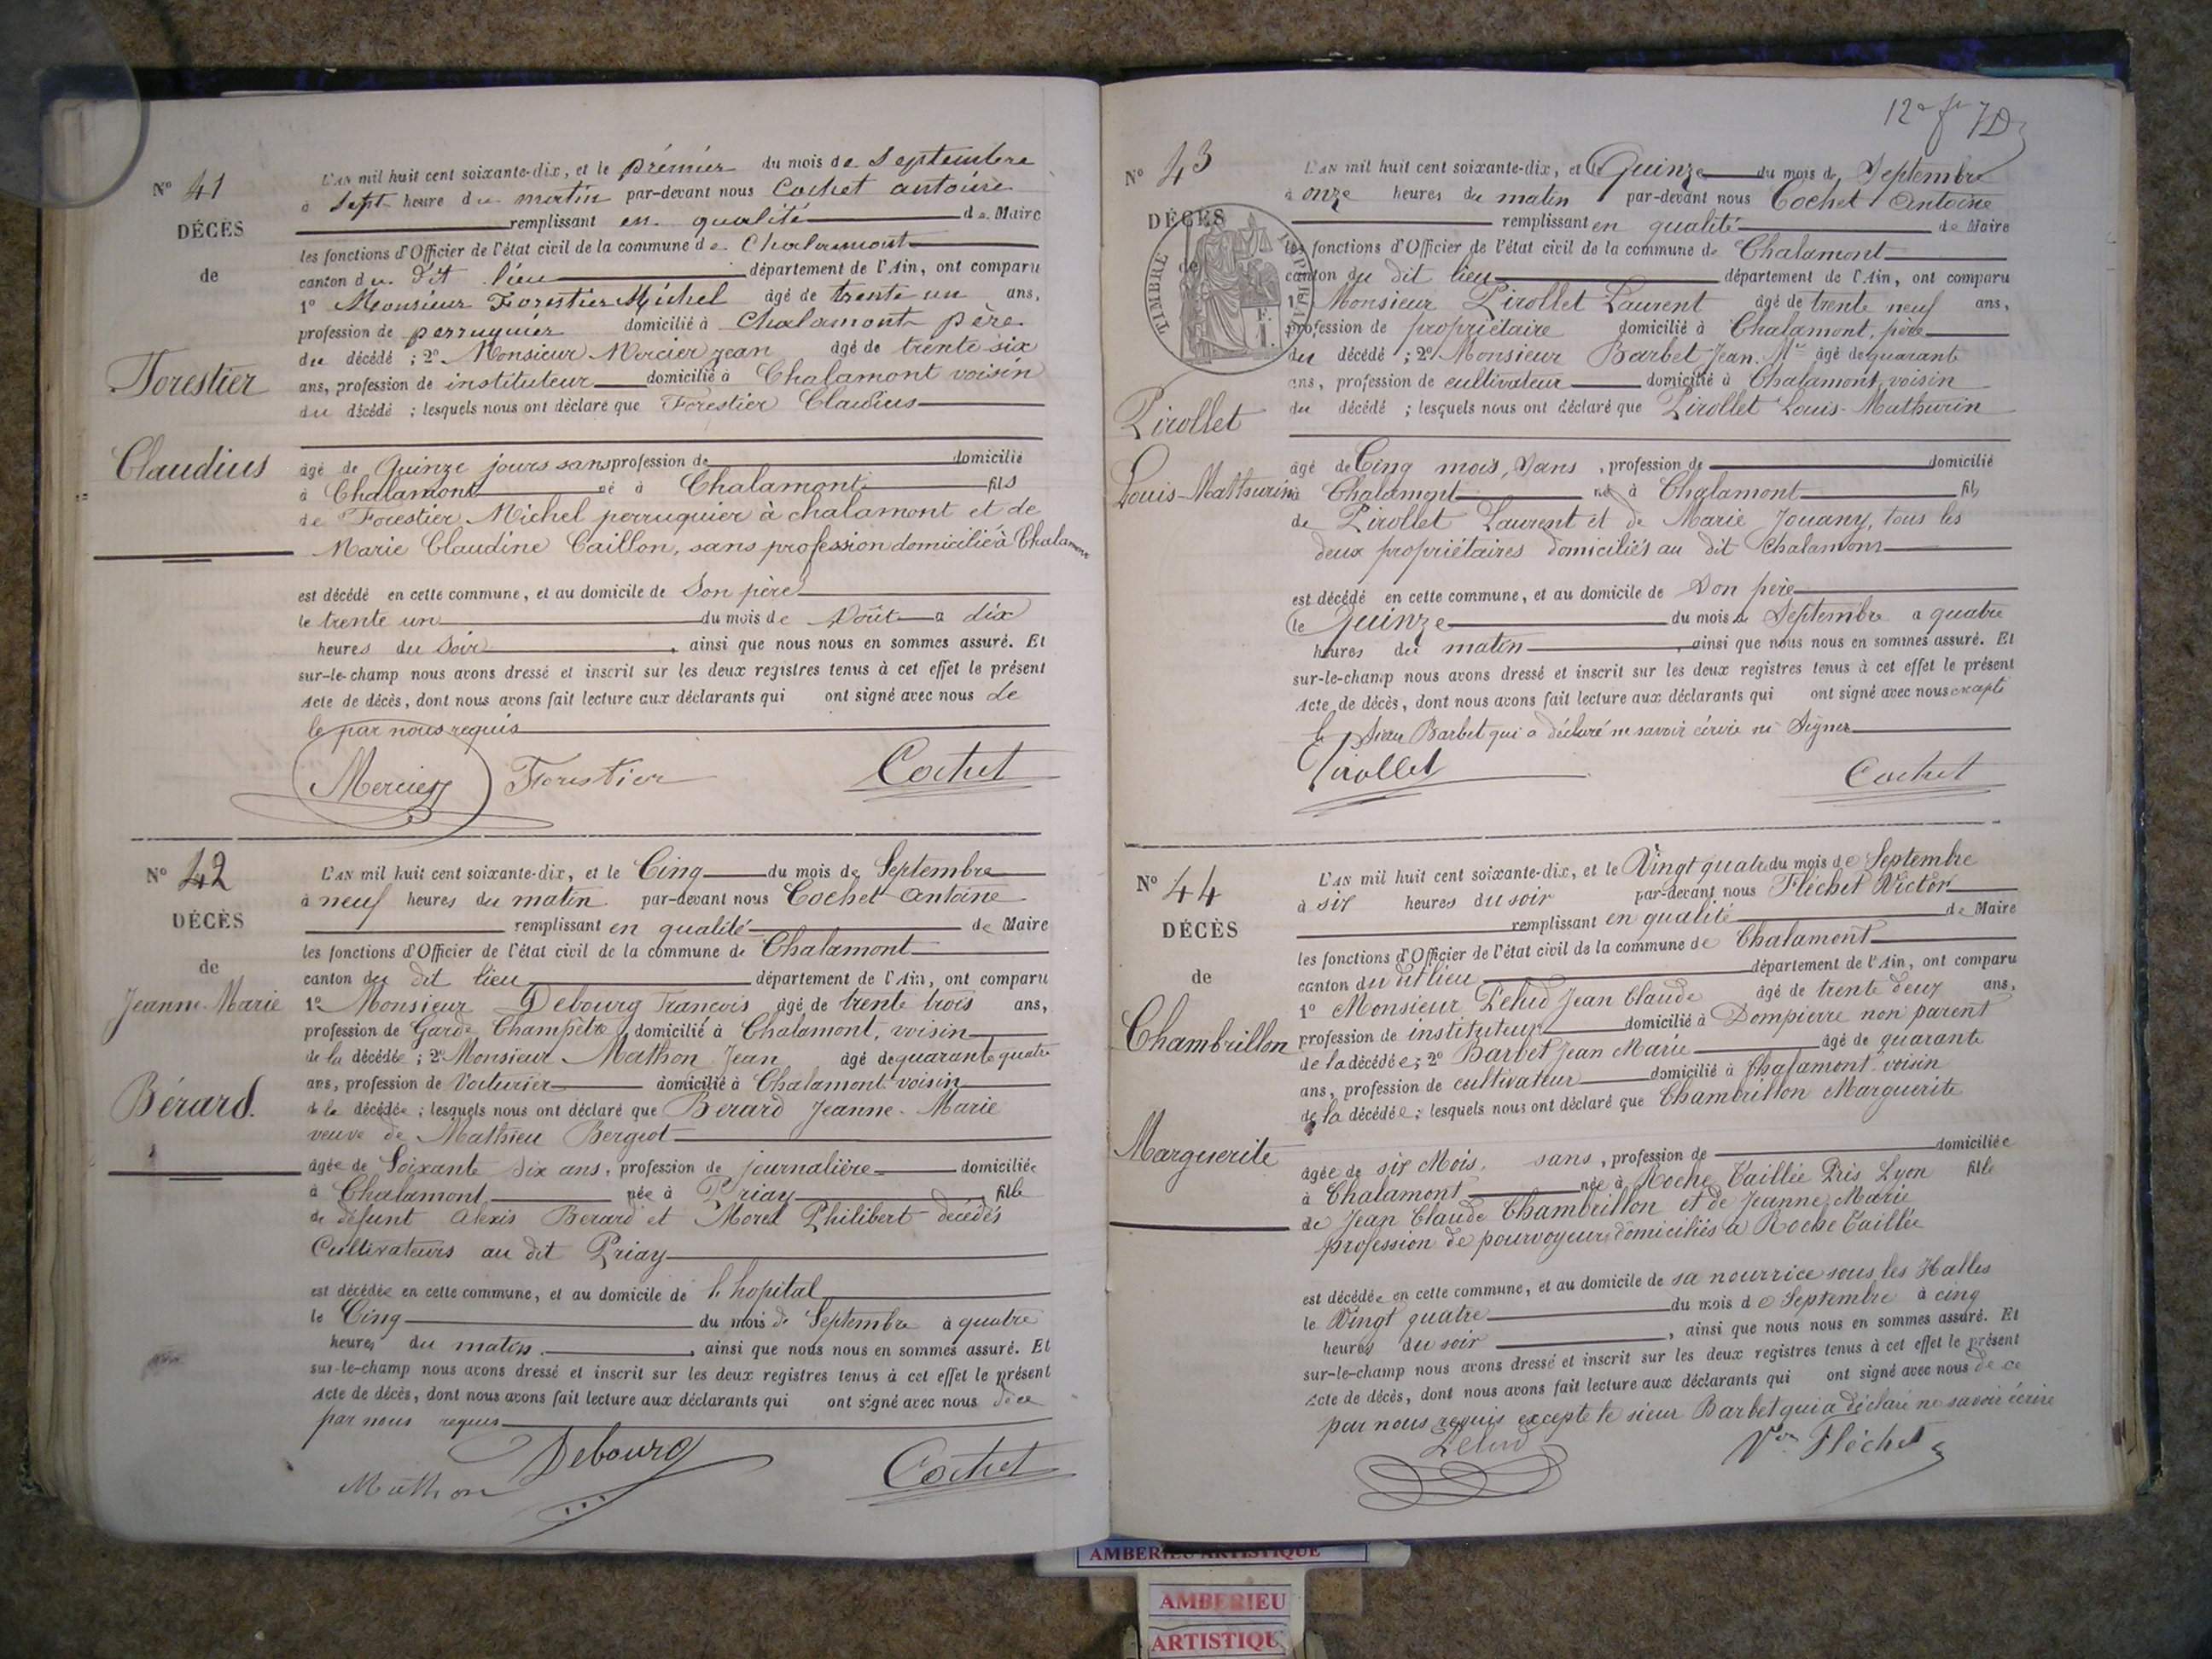 N° 41
DÉCÈS
de
Forestier
Claudius
L'AN mil huit cent soixante-dix, et le prémier du mois de Septembre
à Sept heure du matin par-devant nous Cochet antoine
remplissant en qualité de Maire
les fonctions d'Officier de l'état civil de la commune de Chalamont
canton du dit lieu département de l'Ain, ont comparu
1° Monsieur Forestier Michel âgé de trente un ans,
profession de perruquier domicilié à Chalamont père
du décédé ; 2° Monsieur Mercier jean âgé de trente six
ans, profession de instituteur domicilié à Chalamont voisin
du décédé ; lesquels nous ont déclaré que Forestier Claudius
âgé de Quinze jours sans profession de domicilié
à Chalamont né à Chalamont fils
de Forestier Michel perruquier à chalamont et de
Marie Claudine Caillon, sans profession domicilié à Chalamont
est décédé en cette commune, et au domicile de Son père
le trente un du mois de Août à dix
heures du Soir, ainsi que nous nous en sommes assuré. Et
sur-le-champ nous avons dressé et inscrit sur les deux registres tenus à cet effet le présent
Acte de décès, dont nous avons fait lecture aux déclarants qui ont signé avec nous de
le par nous requis
Mercier Forestier Cochet
N° 42
DÉCÈS
de
Jeanne-Marie
Bérard.
L'AN mil huit cent soixante-dix, et le Cinq du mois de Septembre
à neuf heures du matin par-devant nous Cochet Antoine
remplissant en qualité de Maire
les fonctions d'Officier de l'état civil de la commune de Chalamont
canton du dit lieu département de l'Ain, ont comparu
1° Monsieur Debourg François âgé de trente trois ans,
profession de Garde Champêtre domicilié à Chalamont, voisin
de la décédée ; 2° Monsieur Mathon Jean âgé de quarante quatre
ans, profession de Voiturier domicilié à Chalamont voisin
de la décédée ; lesquels nous ont déclaré que Berard Jeanne-Marie
veuve de Mathieu Bergeot
âgée de Soixante Six ans, profession de journalière domiciliée
à Chalamont née à Priay fille
de défunt Alexis Berard et Morel Philibert décédés
Cultivateurs au dit Priay
est décédée en cette commune, et au domicile de l'hopital
le Cinq du mois de Septembre à quatre
heures du matin, ainsi que nous nous en sommes assuré. Et
sur-le-champ nous avons dressé et inscrit sur les deux registres tenus à cet effet le présent
Acte de décès, dont nous avons fait lecture aux déclarants qui ont signé avec nous de ce
par nous requis
Mathon Debourg Cochet
N° 43
DÉCÈS
de
TIMBRE
Pirollet
Louis-Mathurin
L'AN mil huit cent soixante-dix, et le Quinze du mois de Septembre
à onze heures du matin par-devant nous Cochet Antoine
remplissant en qualité de Maire
les fonctions d'Officier de l'état civil de la commune de Chalamont
canton du dit lieu département de l'Ain, ont comparu
1° Monsieur Pirollet Laurent âgé de trente neuf ans,
profession de propriétaire domicilié à Chalamont, père
du décédé ; 2° Monsieur Barbet Jean Mie âgé de quarante
ans, profession de cultivateur domicilié à Chalamont, voisin
du décédé ; lesquels nous ont déclaré que Pirollet Louis-Mathurin
âgé de Cinq mois, Sans, profession de domicilié
à Chalamont né à Chalamont fils
de Pirollet Laurent et de Marie Jouany, tous les
deux propriétaires domiciliés au dit Chalamont
est décédé en cette commune, et au domicile de Son père
le Quinze du mois de Septembre à quatre
heures du matin, ainsi que nous nous en sommes assuré. Et
sur-le-champ nous avons dressé et inscrit sur les deux registres tenus à cet effet le présent
Acte de décès, dont nous avons fait lecture aux déclarants qui ont signé avec nous excepté
le Sieur Barbet qui a déclaré ne savoir écrire ni Signer
Pirollet Cochet
N° 44
DÉCÈS
de
Chambrillon
Marguerite
L'AN mil huit cent soixante-dix, et le Vingt quatre du mois de Septembre
à six heures du soir par-devant nous Fléchet Victor
remplissant en qualité de Maire
les fonctions d'Officier de l'état civil de la commune de Chalamont
canton du dit lieu département de l'Ain, ont comparu
1° Monsieur Pelud Jean Claude âgé de trente deux ans,
profession de instituteur domicilié à Dompierre non parent
de la décédée ; 2° Barbet Jean Marie âgé de quarante
ans, profession de cultivateur domicilié à Chalamont voisin
de la décédée ; lesquels nous ont déclaré que Chambrillon Marguerite
âgée de six Mois, sans, profession de domiciliée
à Chalamont née à Roche Taillée Près Lyon fille
de Jean Claude Chambrillon et de Jeanne Marie
profession de pourvoyeurs domiciliés à Roche Taillée
est décédée en cette commune, et au domicile de sa nourrice sous les Halles
le Vingt quatre du mois de Septembre à cinq
heures du soir, ainsi que nous nous en sommes assuré. Et
sur-le-champ nous avons dressé et inscrit sur les deux registres tenus à cet effet le présent
Acte de décès, dont nous avons fait lecture aux déclarants qui ont signé avec nous de ce
par nous requis excepté le sieur Barbet qui a déclaré ne savoir écrire
Pelud Vor Fléchet
AMBERIEU ARTISTIQUE
AMBERIEU
ARTISTIQU